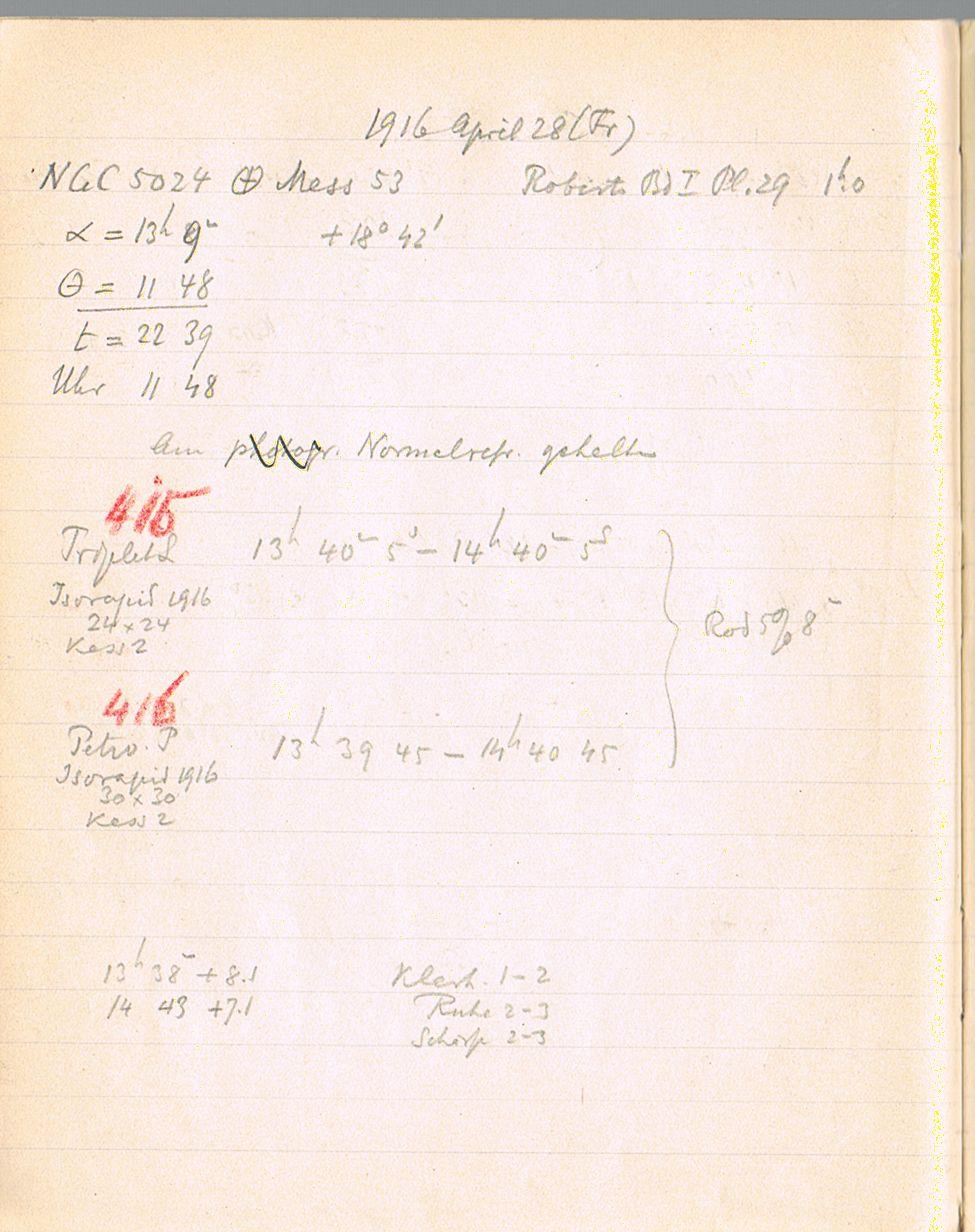 1916 April 28 (Fr)
NGC 5024 ⊕ Mess 53 Roberts Bd I Pl. 29 1ʰ.0
α = 13ʰ 9ᵐ +18° 42'
Θ = 11 48
t = 22 39
Uhr 11 48
Am photogr. Normalrefr. gehalten
415
Triplet L 13ʰ 40ᵐ 5ˢ – 14ʰ 40ᵐ 5ˢ
Isorapid 1916
24 × 24
Kass 2
Rod 59, 8ᵐ
416
Petzv. P 13ʰ 39 45 – 14ʰ 40 45
Isorapid 1916
30 × 30
Kass 2
13ʰ 38ᵐ + 8.1 Klarh. 1–2
14 43 + 7.1 Ruhe 2–3
Schärfe 2–3